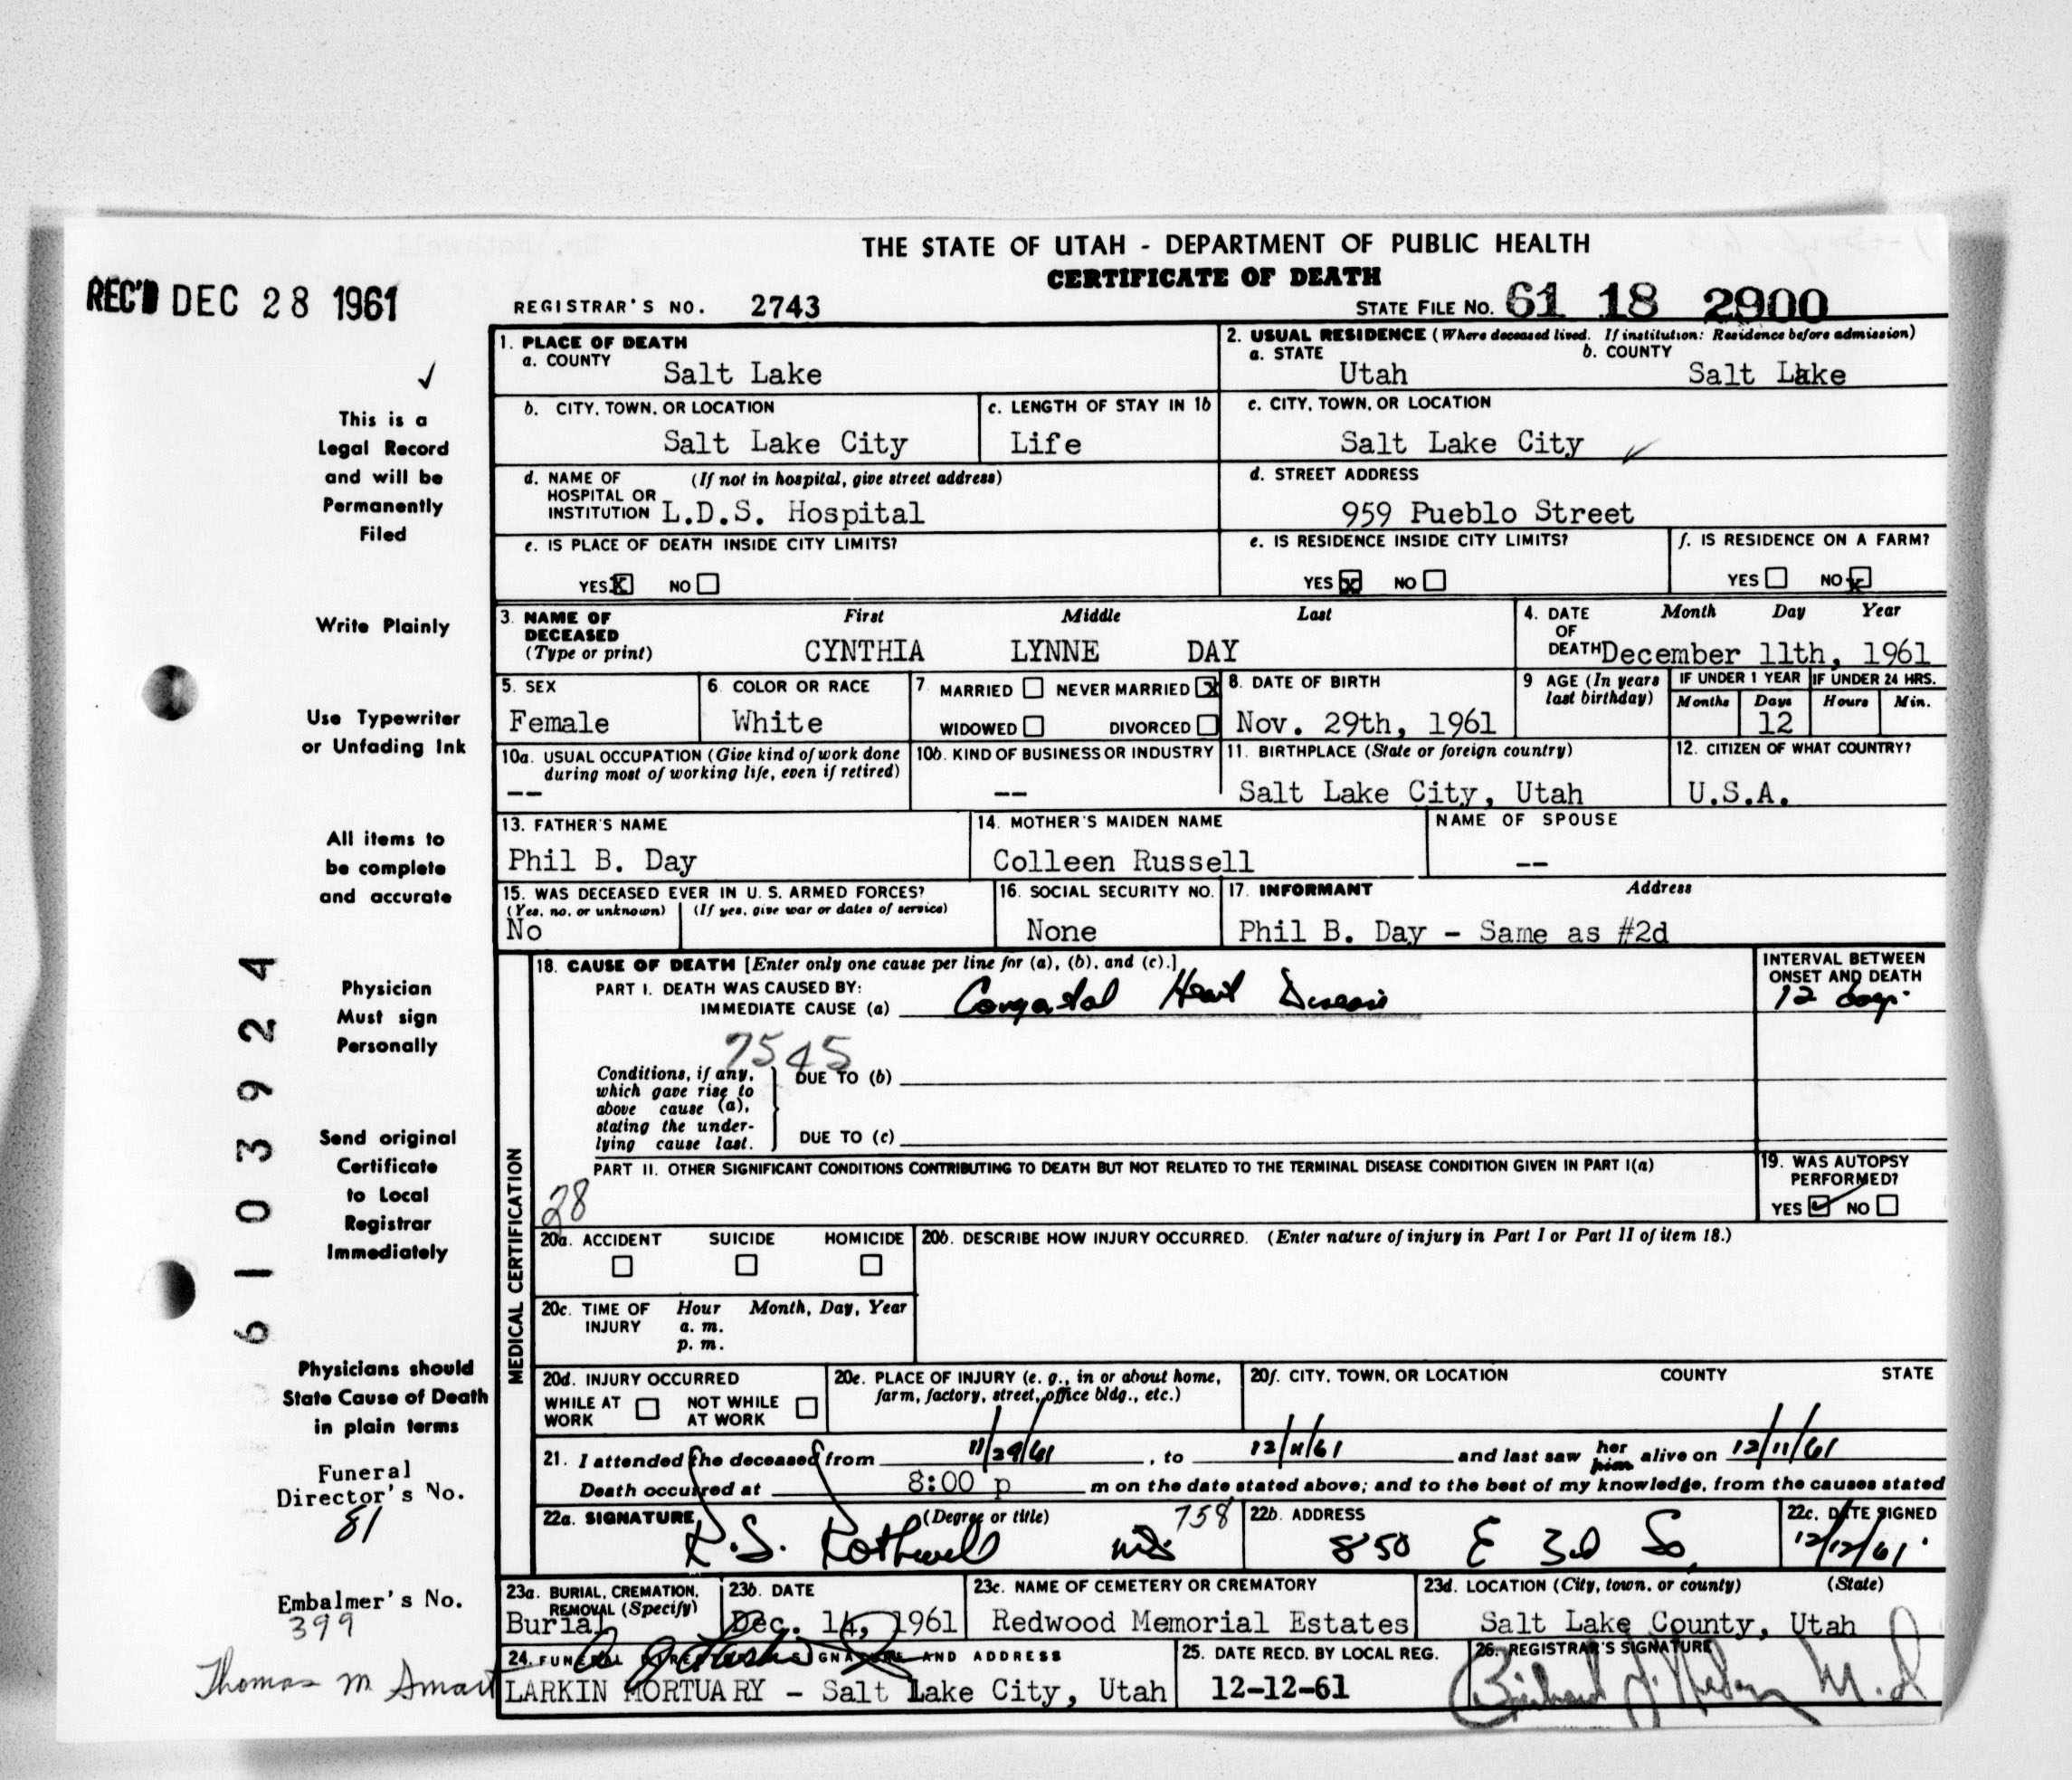 THE STATE OF UTAH - DEPARTMENT OF PUBLIC HEALTH
CERTIFICATE OF DEATH
REC'D DEC 28 1961
REGISTRAR'S NO. 2743
STATE FILE NO. 61 18 2900
1. PLACE OF DEATH
a. COUNTY Salt Lake
2. USUAL RESIDENCE (Where deceased lived. If institution: Residence before admission)
a. STATE Utah b. COUNTY Salt Lake
b. CITY, TOWN, OR LOCATION Salt Lake City
c. LENGTH OF STAY IN 1b Life
c. CITY, TOWN, OR LOCATION Salt Lake City
d. NAME OF HOSPITAL OR INSTITUTION (If not in hospital, give street address) L.D.S. Hospital
d. STREET ADDRESS 959 Pueblo Street
e. IS PLACE OF DEATH INSIDE CITY LIMITS?
YES X NO
e. IS RESIDENCE INSIDE CITY LIMITS?
YES X NO
f. IS RESIDENCE ON A FARM?
YES NO X
3. NAME OF DECEASED (Type or print) First Middle Last
CYNTHIA LYNNE DAY
4. DATE OF DEATH Month Day Year
December 11th, 1961
5. SEX Female
6. COLOR OR RACE White
7. MARRIED NEVER MARRIED X
WIDOWED DIVORCED
8. DATE OF BIRTH Nov. 29th, 1961
9 AGE (In years last birthday)
IF UNDER 1 YEAR Months Days 12
IF UNDER 24 HRS. Hours Min.
10a. USUAL OCCUPATION (Give kind of work done during most of working life, even if retired) --
10b. KIND OF BUSINESS OR INDUSTRY --
11. BIRTHPLACE (State or foreign country) Salt Lake City, Utah
12. CITIZEN OF WHAT COUNTRY? U.S.A.
13. FATHER'S NAME Phil B. Day
14. MOTHER'S MAIDEN NAME Colleen Russell
NAME OF SPOUSE --
15. WAS DECEASED EVER IN U. S. ARMED FORCES?
(Yes, no, or unknown) (If yes, give war or dates of service)
No
16. SOCIAL SECURITY NO. None
17. INFORMANT Address
Phil B. Day - Same as #2d
MEDICAL CERTIFICATION
18. CAUSE OF DEATH [Enter only one cause per line for (a), (b), and (c).]
PART I. DEATH WAS CAUSED BY:
IMMEDIATE CAUSE (a) Congenital Heart Disease
INTERVAL BETWEEN ONSET AND DEATH
12 days
7545
Conditions, if any, which gave rise to above cause (a), stating the underlying cause last.
DUE TO (b)
DUE TO (c)
PART II. OTHER SIGNIFICANT CONDITIONS CONTRIBUTING TO DEATH BUT NOT RELATED TO THE TERMINAL DISEASE CONDITION GIVEN IN PART I(a)
28
19. WAS AUTOPSY PERFORMED?
YES ✓ NO
20a. ACCIDENT SUICIDE HOMICIDE
20b. DESCRIBE HOW INJURY OCCURRED. (Enter nature of injury in Part I or Part II of item 18.)
20c. TIME OF INJURY Hour Month, Day, Year
a. m.
p. m.
20d. INJURY OCCURRED
WHILE AT WORK NOT WHILE AT WORK
20e. PLACE OF INJURY (e. g., in or about home, farm, factory, street, office bldg., etc.)
20f. CITY, TOWN, OR LOCATION COUNTY STATE
21. I attended the deceased from 11/29/61, to 12/11/61 and last saw her him alive on 12/11/61
Death occurred at 8:00 p m on the date stated above; and to the best of my knowledge, from the causes stated
22a. SIGNATURE (Degree or title) 758
R. S. Rothwell MD
22b. ADDRESS 850 E 3rd So.
22c. DATE SIGNED 12/12/61
23a. BURIAL, CREMATION, REMOVAL (Specify) Burial
23b. DATE Dec. 14, 1961
23c. NAME OF CEMETERY OR CREMATORY Redwood Memorial Estates
23d. LOCATION (City, town, or county) (State)
Salt Lake County, Utah
24. FUNERAL DIRECTOR'S SIGNATURE AND ADDRESS
LARKIN MORTUARY - Salt Lake City, Utah
25. DATE RECD. BY LOCAL REG. 12-12-61
26. REGISTRAR'S SIGNATURE
M.D
✓
This is a
Legal Record
and will be
Permanently
Filed
Write Plainly
Use Typewriter
or Unfading Ink
All items to
be complete
and accurate
Physician
Must sign
Personally
Send original
Certificate
to Local
Registrar
Immediately
Physicians should
State Cause of Death
in plain terms
Funeral
Director's No.
81
Embalmer's No.
399
Thomas M Smart
6103924